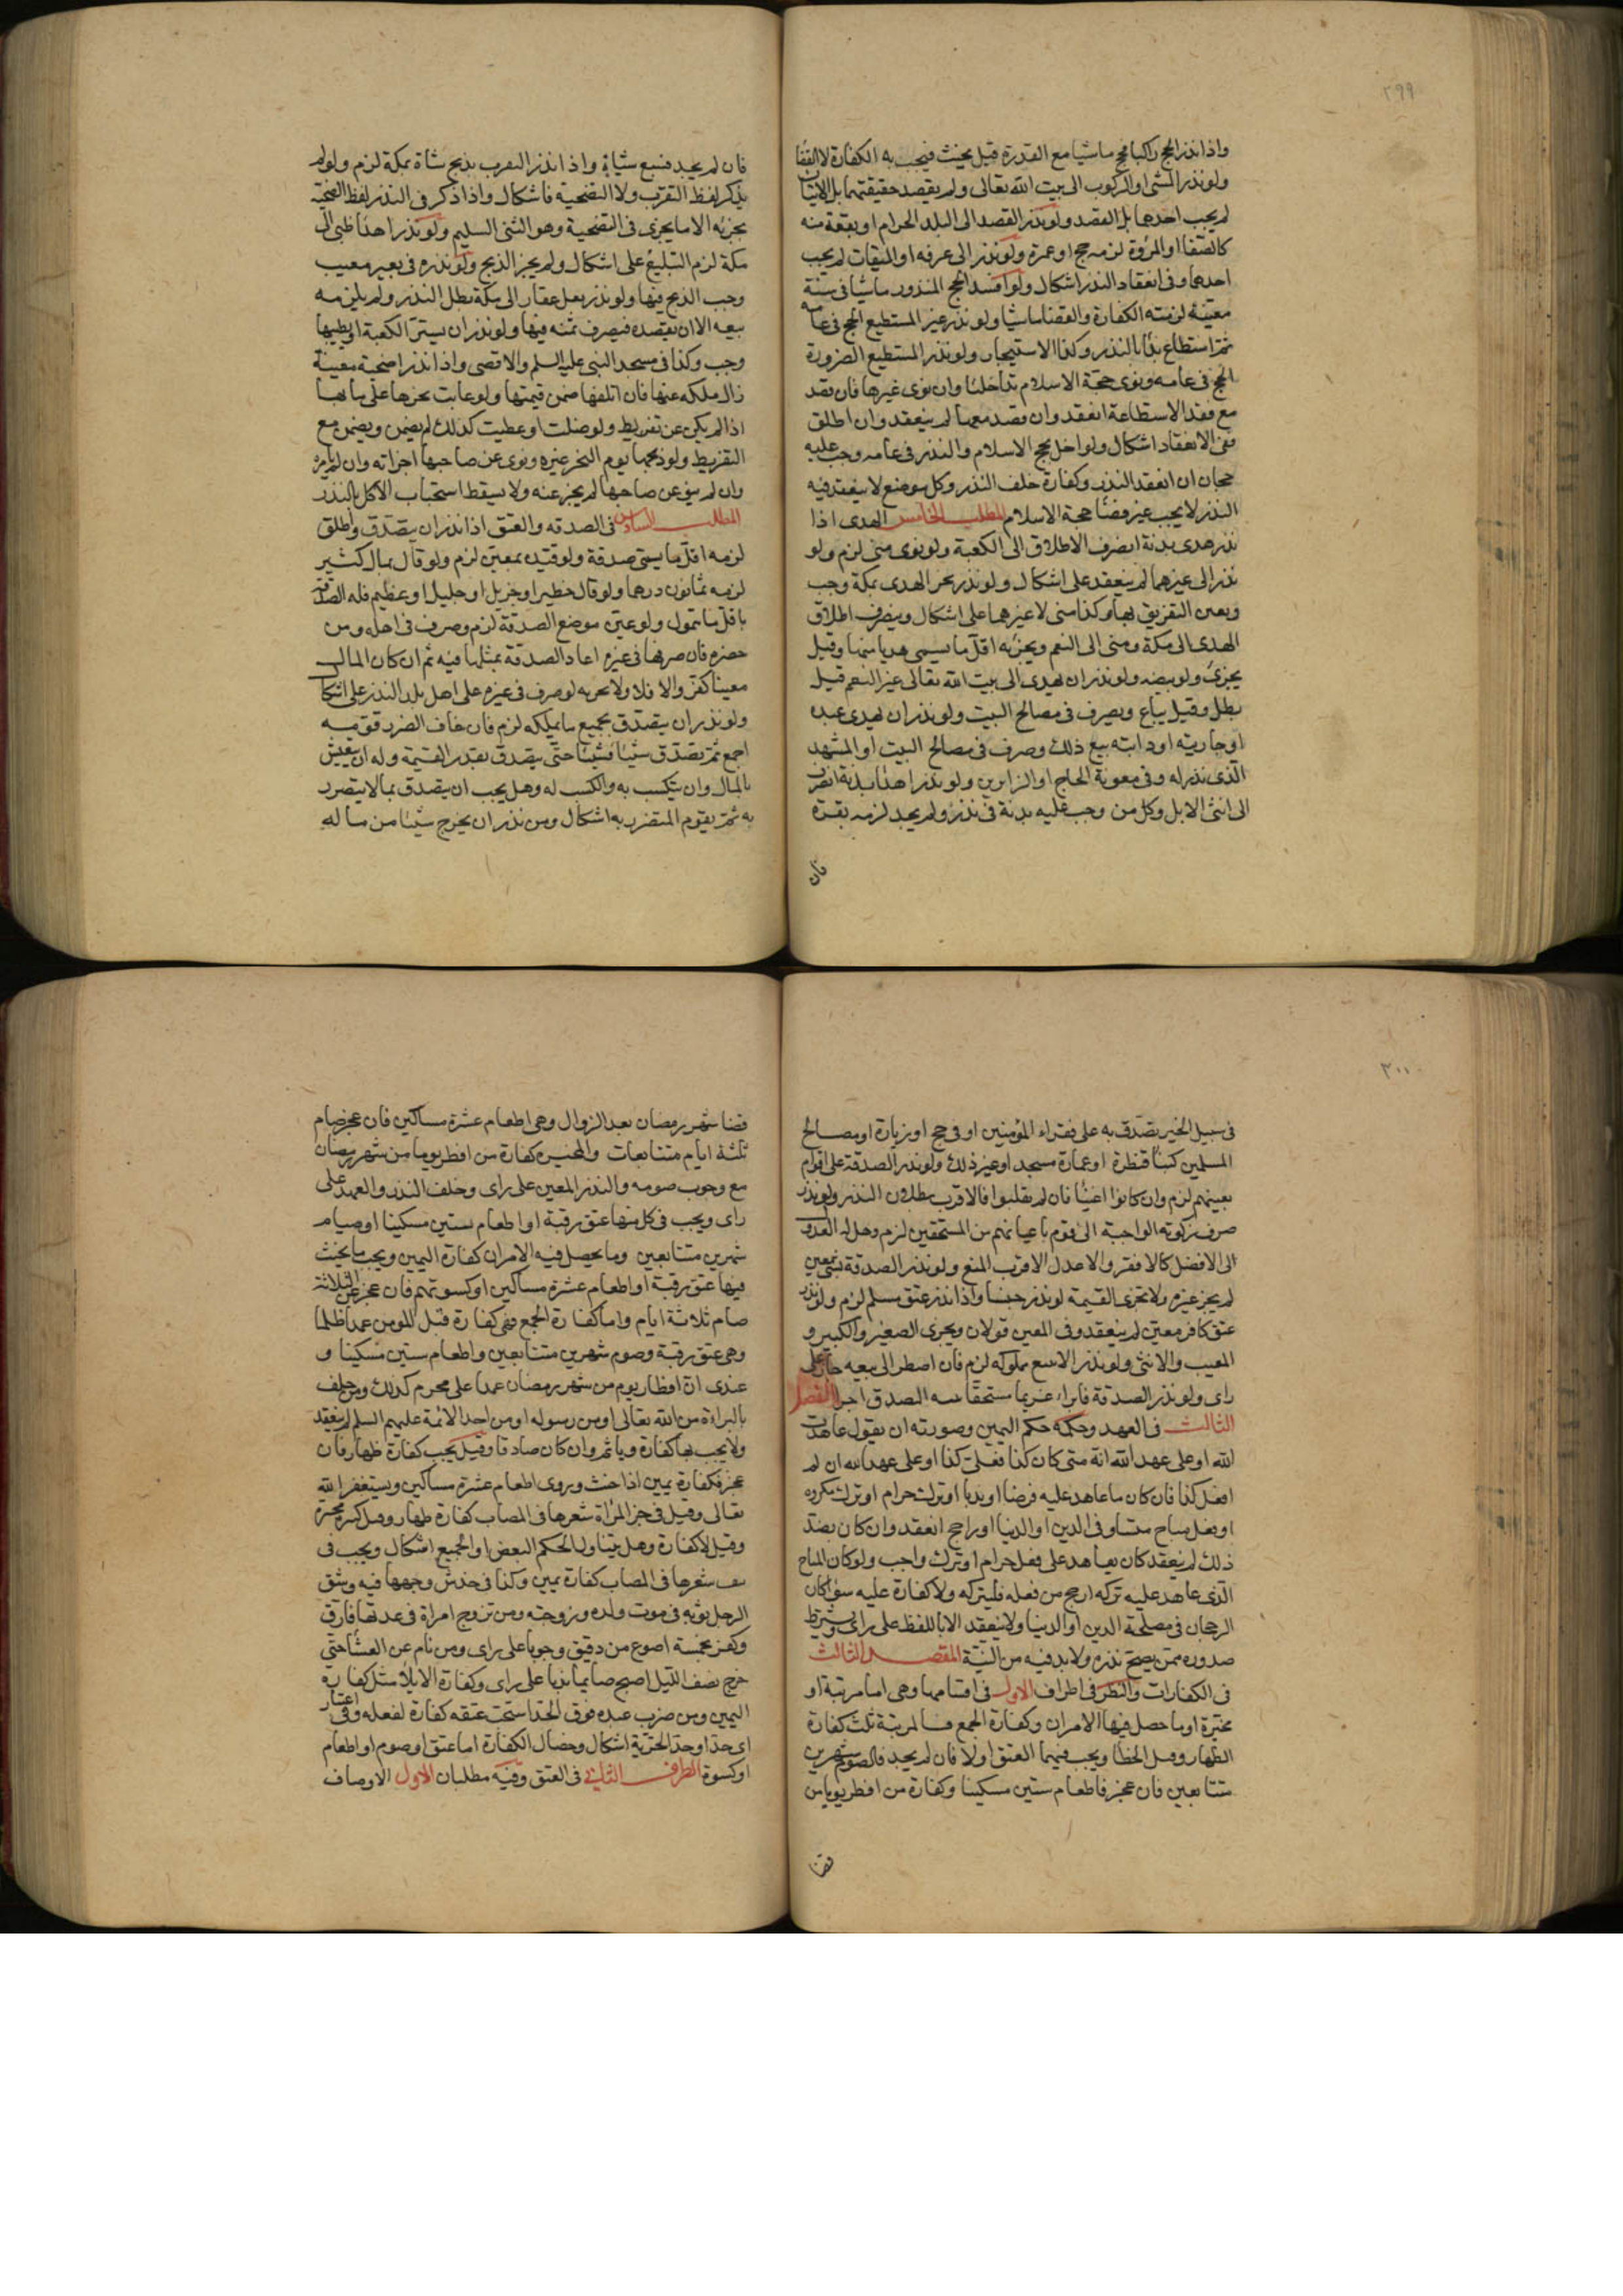 ٢٩٩
واذا نذر الحج راكبا فحج ماشيا مع القدرة قيل يحنث فيجب به الكفارة لا القضا
ولو نذر المشى او الركوب الى بيت الله تعالى ولم يقصد حقيقتهما بل الاتيان
لم يجب احدهما بل القصد ولو نذر القصد الى البلد الحرام او بقعة منه
كالصفا او المروة لزمه حج او عمرة ولو نذر الى عرفه او الميقات لم يجب
احدهما وفى انعقاد النذر اشكال ولو افسد الحج المنذور ماشيا فى سنة
معينة لزمته الكفارة والقضا ماشيا ولو نذر غير المستطيع الحج فى عامه
ثم استطاع بدا بالنذر وكذا الاستيجار ولو نذر المستطيع الصرورة
الحج فى عامه ونوى حجة الاسلام تداخلتا وان نوى غيرها فان قصد
مع فقد الاستطاعة انعقد وان قصد معها لم ينعقد وان اطلق
ففى الانعقاد اشكال ولو اخل بحج الاسلام والنذر فى عامه وجب عليه
حجان ان انعقد النذر وكفارة خلف النذر وكل موضع لا ينعقد فيه
النذر لا يجب غير قضا حجة الاسلام المطلب الخامس الهدى اذا
نذر هدى بدنة انصرف الاطلاق الى الكعبة ولو نوى منى لزم ولو
نذر الى غيرهما لم ينعقد على اشكال ولو نذر نحر الهدى بمكة وجب
وتعين التفريق بها وكذا منى لا غيرهما على اشكال وينصرف اطلاق
الهدى الى مكة ومنى الى النعم ويجزئه اقل ما يسمى هديا منها وقيل
يجزى ولو بيضه ولو نذر ان يهدى الى بيت الله تعالى غير النعم قيل
بطل وقيل يباع ويصرف فى مصالح البيت ولو نذر ان يهدى عبده
او جاريته او دابته بيع ذلك وصرف فى مصالح البيت او المشهد
الذى نذر له وفى معونة الحاج او الزايرين ولو نذر اهداء بدنة انصرف
الى انثى الابل وكل من وجب عليه بدنة فى نذر ولم يجد لزمه بقرة
فان
فان لم يجد فسبع شياة واذا نذر التقرب بذبح شاة بمكة لزم ولو لم
يذكر لفظ التقرب ولا التضحية فاشكال واذا ذكر فى النذر لفظ التضحية
يجزئه الا ما يجزى فى التضحية وهو الثنى السليم ولو نذر اهدا ظبى الى
مكة لزم التبليغ على اشكال ولم يجز الذبح ولو نذره فى بعير معيب
وجب الذبح فيها ولو نذر نقل عقار الى مكة بطل النذر ولم يلزمه
بيعه الا ان يقصده فيصرف ثمنه فيها ولو نذر ان يستر الكعبة او يطيبها
وجب وكذا فى مسجد النبى عليه السلم والاقصى واذا نذر اضحية معينة
زال ملكه عنها فان اتلفها ضمن قيمتها ولو عابت نحرها على ما بها
اذا لم يكن عن تفريط ولو ضلت او عطبت كذلك لم يضمن ويضمن مع
التفريط ولو ذبحها يوم النحر غيره ونوى عن صاحبها اجزاته وان لم يامره
وان لم ينو عن صاحبها لم يجز عنه ولا يسقط استحباب الاكل بالنذر
المطلب السادس فى الصدقه والعتق اذا نذر ان يتصدق واطلق
لزمه اقل ما يسمى صدقة ولو قيده بمعين لزم ولو قال بمال كثير
لزمه ثمانون درهما ولو قال خطير او جزيل او جليل او عظيم فله الصدقة
باقل ما يتمول ولو عين موضع الصدقة لزم وصرف فى اهله ومن
حضره فان صرفها فى غيره اعاد الصدقة بمثلها فيه ثم ان كان المال
معينا كفر والا فلا ولا يجزيه لو صرف فى غيره على اهل بلد النذر على اشكال
ولو نذر ان يتصدق بجميع ما يملكه لزم فان خاف الضرر قومه
اجمع ثم تصدق شيئا فشيئا حتى يتصدق بقدر القيمة وله ان يتعيش
بالمال وان يتكسب به والكسب له وهل يجب ان يتصدق بما لا يتضرر
به ثم يقوم المتضرر به اشكال ومن نذر ان يخرج شيئا من ماله
٣٠٠
فى سبيل الخير تصدق به على فقراء المؤمنين او فى حج او زيارة او مصالح
المسلمين كبناء قنطرة او عمارة مسجد او غير ذلك ولو نذر الصدقة على اقوام
بعينهم لزم وان كانوا اغنيا فان لم يقبلوا فالاقرب بطلان النذر ولو نذر
صرف زكوته الواجبة الى قوم باعيانهم من المستحقين لزم وهل له العدول
الى الافضل كالافقر والاعدل الاقرب المنع ولو نذر الصدقة بشى معين
لم يجز غيره ولا تجزى القيمة لو نذر جنسا واذا نذر عتق مسلم لزم ولو نذر
عتق كافر معين لم ينعقد وفى المعين قولان ويجزى الصغير والكبير و
المعيب والانثى ولو نذر الا يبيع مملوكه لزم فان اضطر الى بيعه جاز على
راى ولو نذر الصدقة فابراء غريما مستحقا بنية التصدق اجزا الفصل
الثالث فى العهد وحكمه حكم اليمين وصورته ان يقول عاهدت
الله او على عهد الله انه متى كان كذا فعلى كذا او على عهد الله ان لم
افعل كذا فان كان ما عاهد عليه فرضا او ندبا او ترك حرام او ترك مكروه
او فعل مباح متساو فى الدين او الدنيا او راجح انعقد وان كان بضد
ذلك لم ينعقد كان يعاهد على فعل حرام او ترك واجب ولو كان المباح
الذى عاهد عليه تركه ارجح من فعله فليتركه ولا كفارة عليه سواء كان
الرجحان فى مصلحة الدين او الدنيا ولا ينعقد الا باللفظ على راى ويشترط
صدوره ممن يصح نذره ولا بد فيه من النية المقصد الثالث
فى الكفارات والنظر فى اطراف الاول فى اقسامها وهى اما مرتبة او
مخيرة او ما حصل فيها الامران وكفارة الجمع فالمرتبة ثلث كفارة
الظهار وقتل الخطا ويجب فيهما العتق اولا فان لم يجد فالصوم شهرين
متتابعين فان عجز فاطعام ستين مسكينا وكفارة من افطر يوما من
قضا
قضا شهر رمضان بعد الزوال وهى اطعام عشرة مساكين فان عجز صام
ثلثة ايام متتابعات والمخيرة كفارة من افطر يوما من شهر رمضان
مع وجوب صومه والنذر المعين على راى وخلف النذر والعهد على
راى ويجب فى كل منها عتق رقبة او اطعام ستين مسكينا او صيام
شهرين متتابعين وما يحصل فيه الامران كفارة اليمين ويجب ما يحنث
فيها عتق رقبة او اطعام عشرة مساكين او كسوتهم فان عجز عن الثلاثة
صام ثلاثة ايام واما كفارة الجمع ففى كفارة قتل المومن عمدا ظلما
وهى عتق رقبة وصوم شهرين متتابعين واطعام ستين مسكينا و
عندى ان افطار يوم من شهر رمضان عمدا على محرم كذلك ومن حلف
بالبراءة من الله تعالى او من رسوله او من احد الائمة عليهم السلم لم ينعقد
ولا يجب بها كفارة وياثم وان كان صادقا وقيل يجب كفارة ظهار فان
عجز فكفارة يمين اذا حنث وروى اطعام عشرة مساكين ويستغفر الله
تعالى وقيل فى جز المرأة شعرها فى المصاب كفارة ظهار وقيل كبيرة مخيرة
وقيل لا كفارة وهل يتناول الحكم البعض او الجميع اشكال ويجب فى
نتف شعرها فى المصاب كفارة يمين وكذا فى خدش وجهها فيه وشق
الرجل ثوبه فى موت ولده وزوجته ومن تزوج امراة فى عدتها فارق
وكفر بخمسة اصوع من دقيق وجوبا على راى ومن نام عن العشاء حتى
خرج نصف الليل اصبح صايما ندبا على راى وكفارة الايلاء مثل كفارة
اليمين ومن ضرب عبده فوق الحد استحب عتقه كفارة لفعله وفى اعتبار
اى حد او حد الحرية اشكال وخصال الكفارة اما عتق او صوم او اطعام
او كسوة الطرف الثانى فى العتق وفيه مطلبان الاول الاوصاف